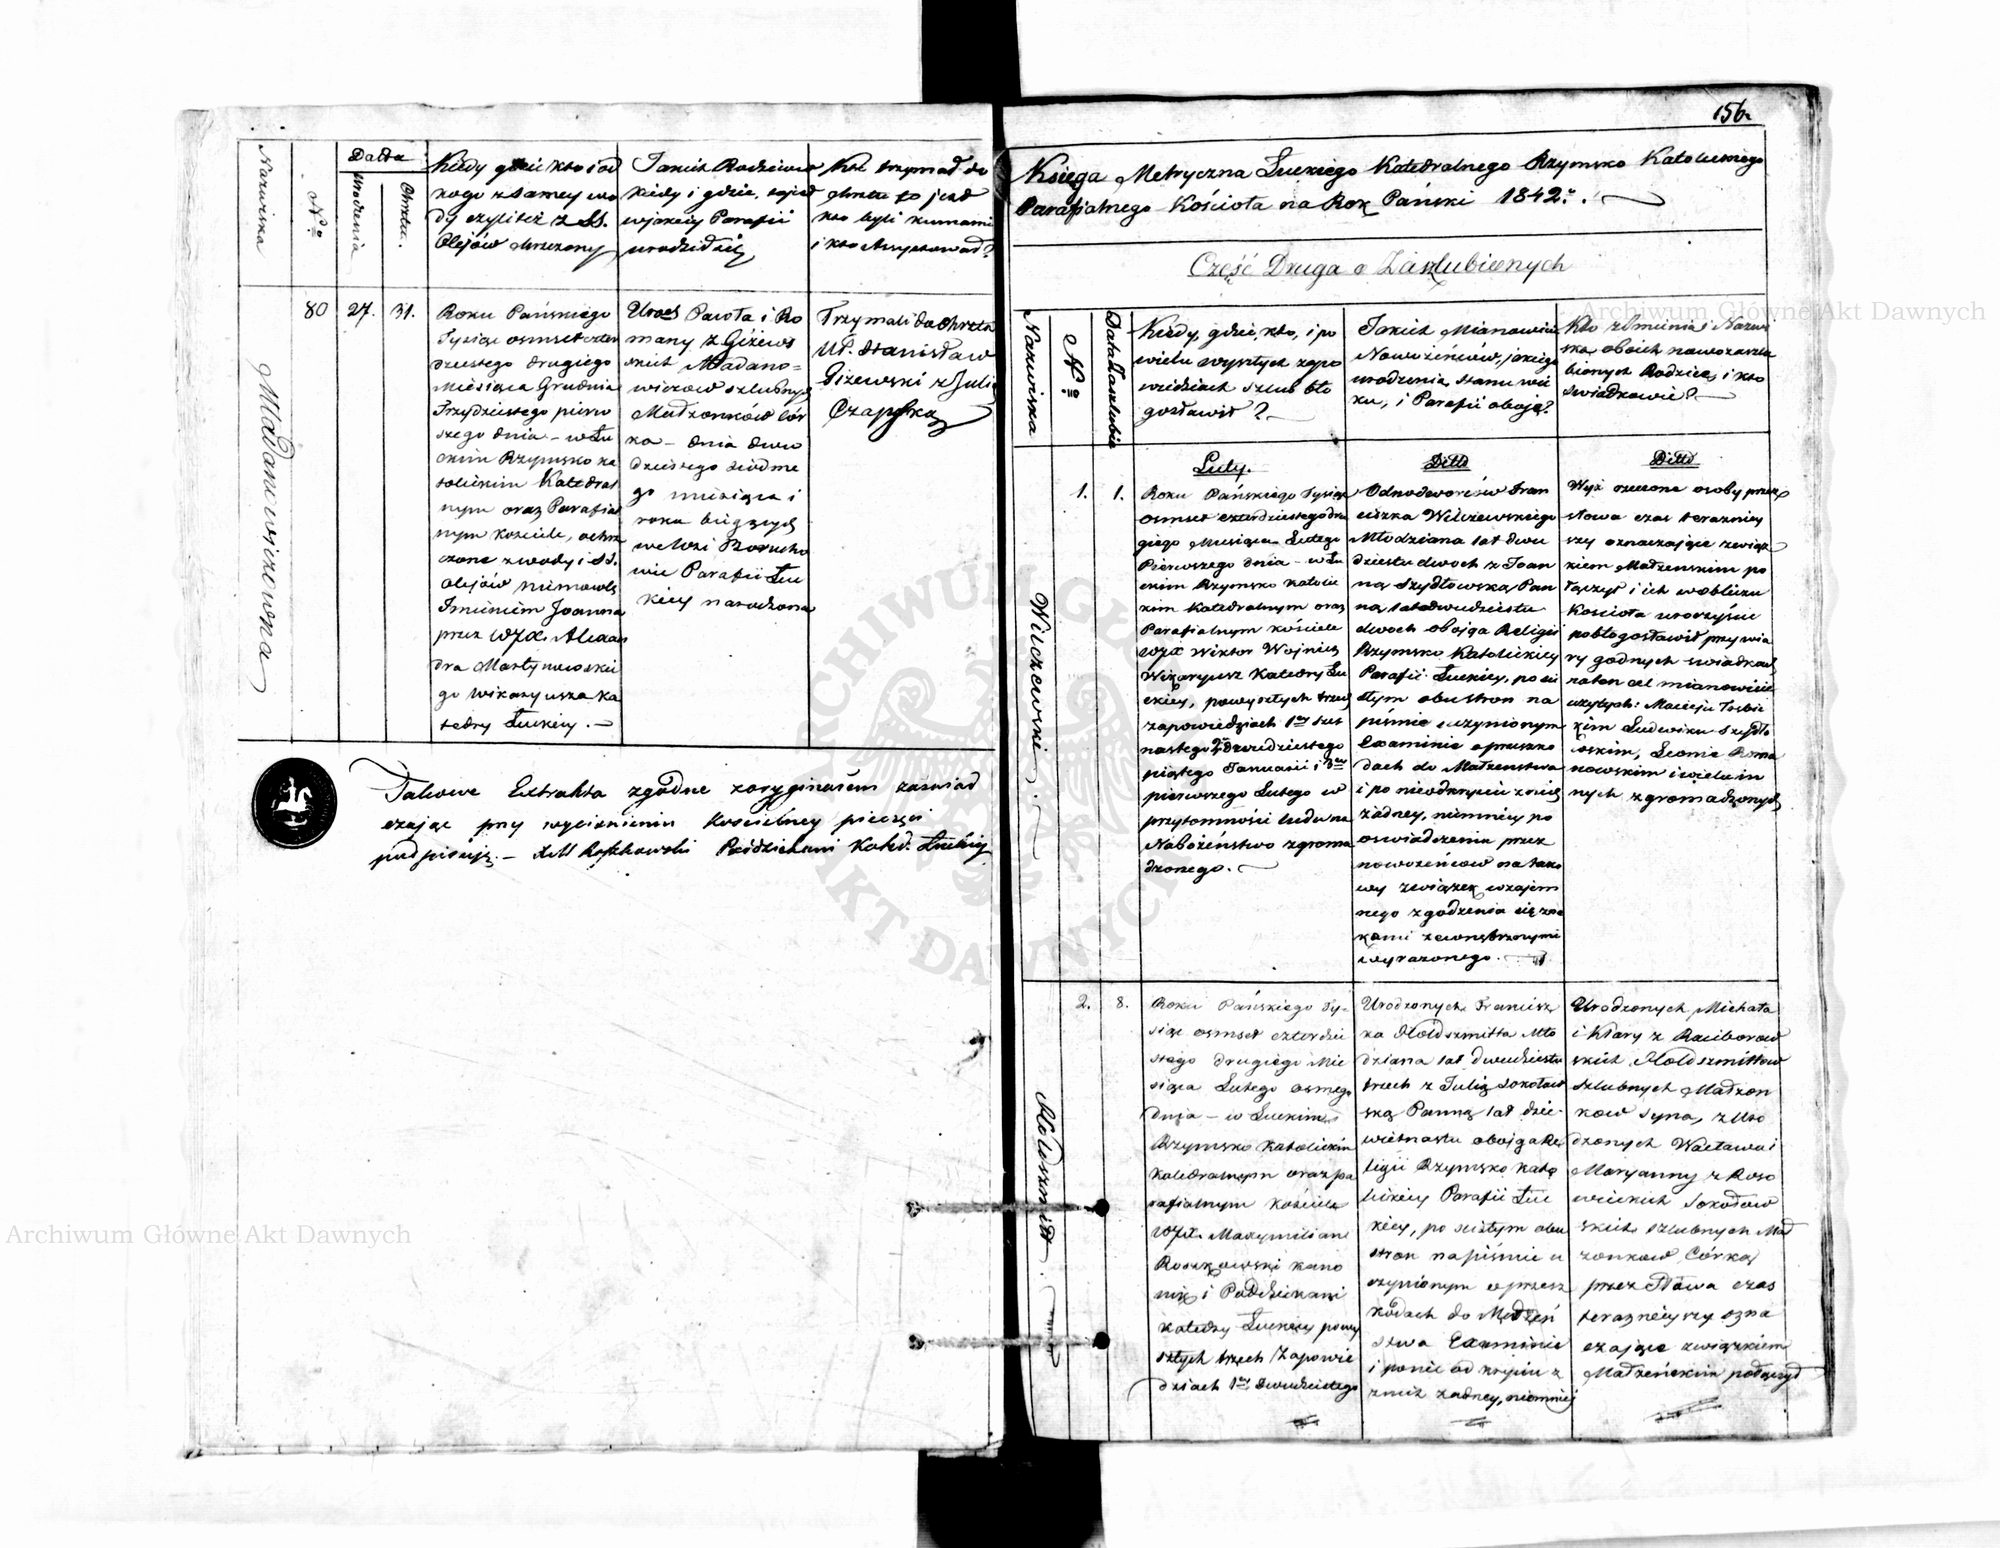 Nazwiska
N:o
Datta
Urodzenia
Chrztu.
Kiedy gdzie kto i od
kogo z samey wo
dy czyli też z SS.
Olejów chrzczony
Jakich Rodziców
kiedy i gdzie, tojest
w jakiéy Parafii
urodził się
Kto trzymał do
chrztu to jest
kto byli kumami
i kto Assystował?
Madanowiczowna
80
27.
31.
Roku Pańskiego
Tysiąc osmset czter
dziestego drugiego
Miesiąca Grudnia
Trzydziestego pierw
szego dnia – w Łu
ckim Rzymsko ka
tolickim Katedral
nym oraz Parafial
nym kościele, ochrz
czone z wody i SS.
Olejów niemowlę
Imieniem Joanna
przez WJX. Alexan
dra Martynowskie
go Wikaryusza Ka
tedry Łuckiey. –
Urod Pawła i Ro
many z Giżews
kich Madano=
wiczów szlubnych
Małżonków Cór
ka – dnia dwu
dziestego siódme
go miesiąca i
roku bieżących
we Wsi Borucho
wie Parafii Łu
ckiey narodzona
Trzymali do chrztu
Ur. Stanisław
Giżewski z Julią
Czapską
Takowe Extrakta zgodne z oryginałem zaświad
czając przy wyciśnieniu Kościelney pieczęci
podpisuję. – X M Roszkowski Poddziekani Kated. Łuckiey
156.
Księga Metryczna Łuckiego Katedralnego Rzymsko Katolickiego
Parafialnego Kościoła na Rok Pański 1842.
Część Druga o Zaszlubionych
Nazwiska
N:o
Data Zaszlubie
Kiedy, gdzie, kto, i po
wielu wyszłych zapo
wiedziach szlub bło
gosławił?
Jakich Mianowicie
Nowożeńców, jakiego
urodzenia, stanu wie
ku, i Parafii oboje?
Kto z Imienia i Nazwi
ska, oboich nowozaszlu
bionych Rodzice, i kto
Swiadkowie?
Wilczewski.
1.
1.
Luty.
Roku Pańskiego Tysiąc
osmset czterdziestego dru
giego Miesiąca Lutego
Pierwszego dnia – w Łu
ckim Rzymsko Katolic
kim Katedralnym oraz
Parafialnym kościele
WJX Wiktor Woyniez
Wikaryusz Katedry Łu
ckiey, po wyszłych trzech
zapowiedziach 1ey
nastego 2 dwudziestego
piątego Januarii i 3ey
pierwszego Lutego w
przytomności ludu na
Nabożeństwo zgroma
dzonego. –
Ditto
Odnodworców Fran
ciszka Wilczewskiego
Młodziana lat dwu
dziestu dwoch z Joan
ną Szydłowską Pan
ną lat dwudziestu
dwoch obojga Religii
Rzymsko Katolickiey
Parafii Łuckiey, po ści
słym obu stron na
piśmie uczynionym
Examinie o przeszko
dach do Małżeństwa
i po nieodkryciu z nich
żadney, niemniey po
oświadczeniu przez
nowożeńców na tako
wy związek wzajem
nego zgodzenia się zna
kami zewnętrznymi
wyrażonego.
Ditto
Wyż rzeczone osoby przez
słowa czas terazniey
szy oznaczające związ
kiem Małżenskim po
łączył i ich w obliczu
Kościoła uroczyście
pobłogosławił przy wia
ry godnych swiadkach
na ten cel mianowicie
użytych: Macieju
kim Ludwiku Szydło
wskim, Leonie Roma
nowskim i wielu in
nych zgromadzonych
Holdszmidt.
2.
8.
Roku Pańskiego Ty-
siąc osmset czterdzie
stego drugiego Mie
siąca Lutego osmego
dnia – w Łuckim
Rzymsko Katolickim
Katedralnym oraz pa
rafialnym kościele
WJX. Maxymilian
Roszkowski kano
nik i Poddziekani
Katedry Łuckiey po wy
szłych trzech Zapowie
dziach 1ey dwudziestego
Urodzonych Francisz
ka Holdszmitta Mło
dziana lat dwudziestu
trzech z Julią Sokołow
ską Panną lat dzie-
wietnastu obojga Re
ligii Rzymsko kato
lickiey Parafii Łu
ckiey, po ścisłym obu
stron na piśmie u
czynionym o przesz
kodach do Małżeń
stwa Examinie
i po nie odkryciu z
znich żadney, niemniey
Urodzonych Michała
i Klary z Raciborow
skich Holdszmittow
szlubnych Małżon
kow syna, z Uro
dzonych Wacława i
Maryanny z Roso
wieckich Sokołow
skich szlubnych Mał
żonkow Córką
przez Słowa czas
teraznieyszy ozna
czające związkiem
Małżeńskim połączył
Archiwum Główne Akt Dawnych
Archiwum Główne Akt Dawnych
ARCHIWUM GŁÓWNE
AKT DAWNYCH